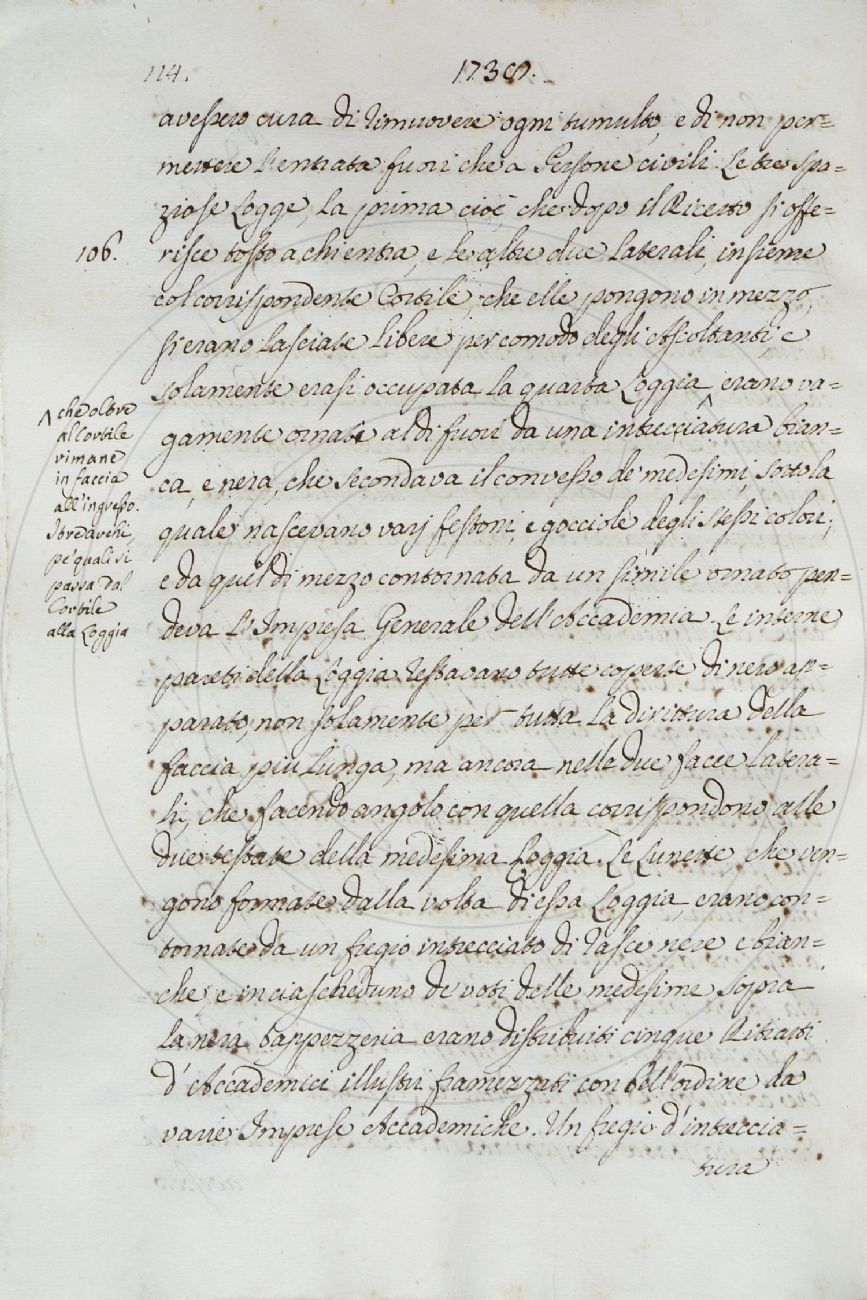 114.
1738.
avessero cura di rimuovere ogni tumulto, e di non per=
mettere l'entrata fuori che a Persone civili. Le tre spa=
ziose Logge, la prima cioè, che dopo il Ricetto si offe=
106.
risce tosto a chi entra, e le altre due laterali, insieme
col corrispondente Cortile, che elle pongono in mezzo,
si erano lasciate libere per comodo degli Ascoltanti, e
solamente erasi occupata la quarta Loggia ^ erano va=
^ che oltre
al Cortile
rimane
in faccia
all'ingresso.
I tre archi,
pe' quali si
passa dal
Cortile
alla Loggia
gamente ornate al di fuori da una intrecciatura bian=
ca, e nera, che secondava il convesso de' medesimi, sotto la
quale nascevano varj festoni, e gocciole degli stessi colori;
e da quel di mezzo contornata da un simile ornato pen=
deva l'Impresa Generale dell'Accademia. Le interne
pareti della Loggia restavano tutte coperte di nero ap=
parato, non solamente per tutta la dirittura della
faccia più lunga, ma ancora nelle due facce latera=
li, che facendo angolo con quella corrispondono alle
due testate della medesima Loggia. Le Lunette, che ven=
gono formate dalla volta di essa Loggia, erano con=
tornate da un fregio intrecciato di fasce nere e bian=
che, e in ciascheduno de' voti delle medesime sopra
la nera tappezzeria erano distribuiti cinque Ritratti
d'Accademici illustri framezzati con bell'ordine da
varie Imprese Accademiche. Un fregio d'intreccia=
tura